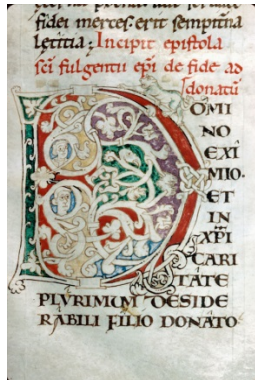 fidei merces erit sempitna
letitia; Incipit epistola
sci fulgentii epi de fide ad
donatū
DOMI
NO
EXI
MIO.
ET
IN
XPI
CARI
TATE
PLVRIMVM DESIDE
RABILI FILIO DONATO